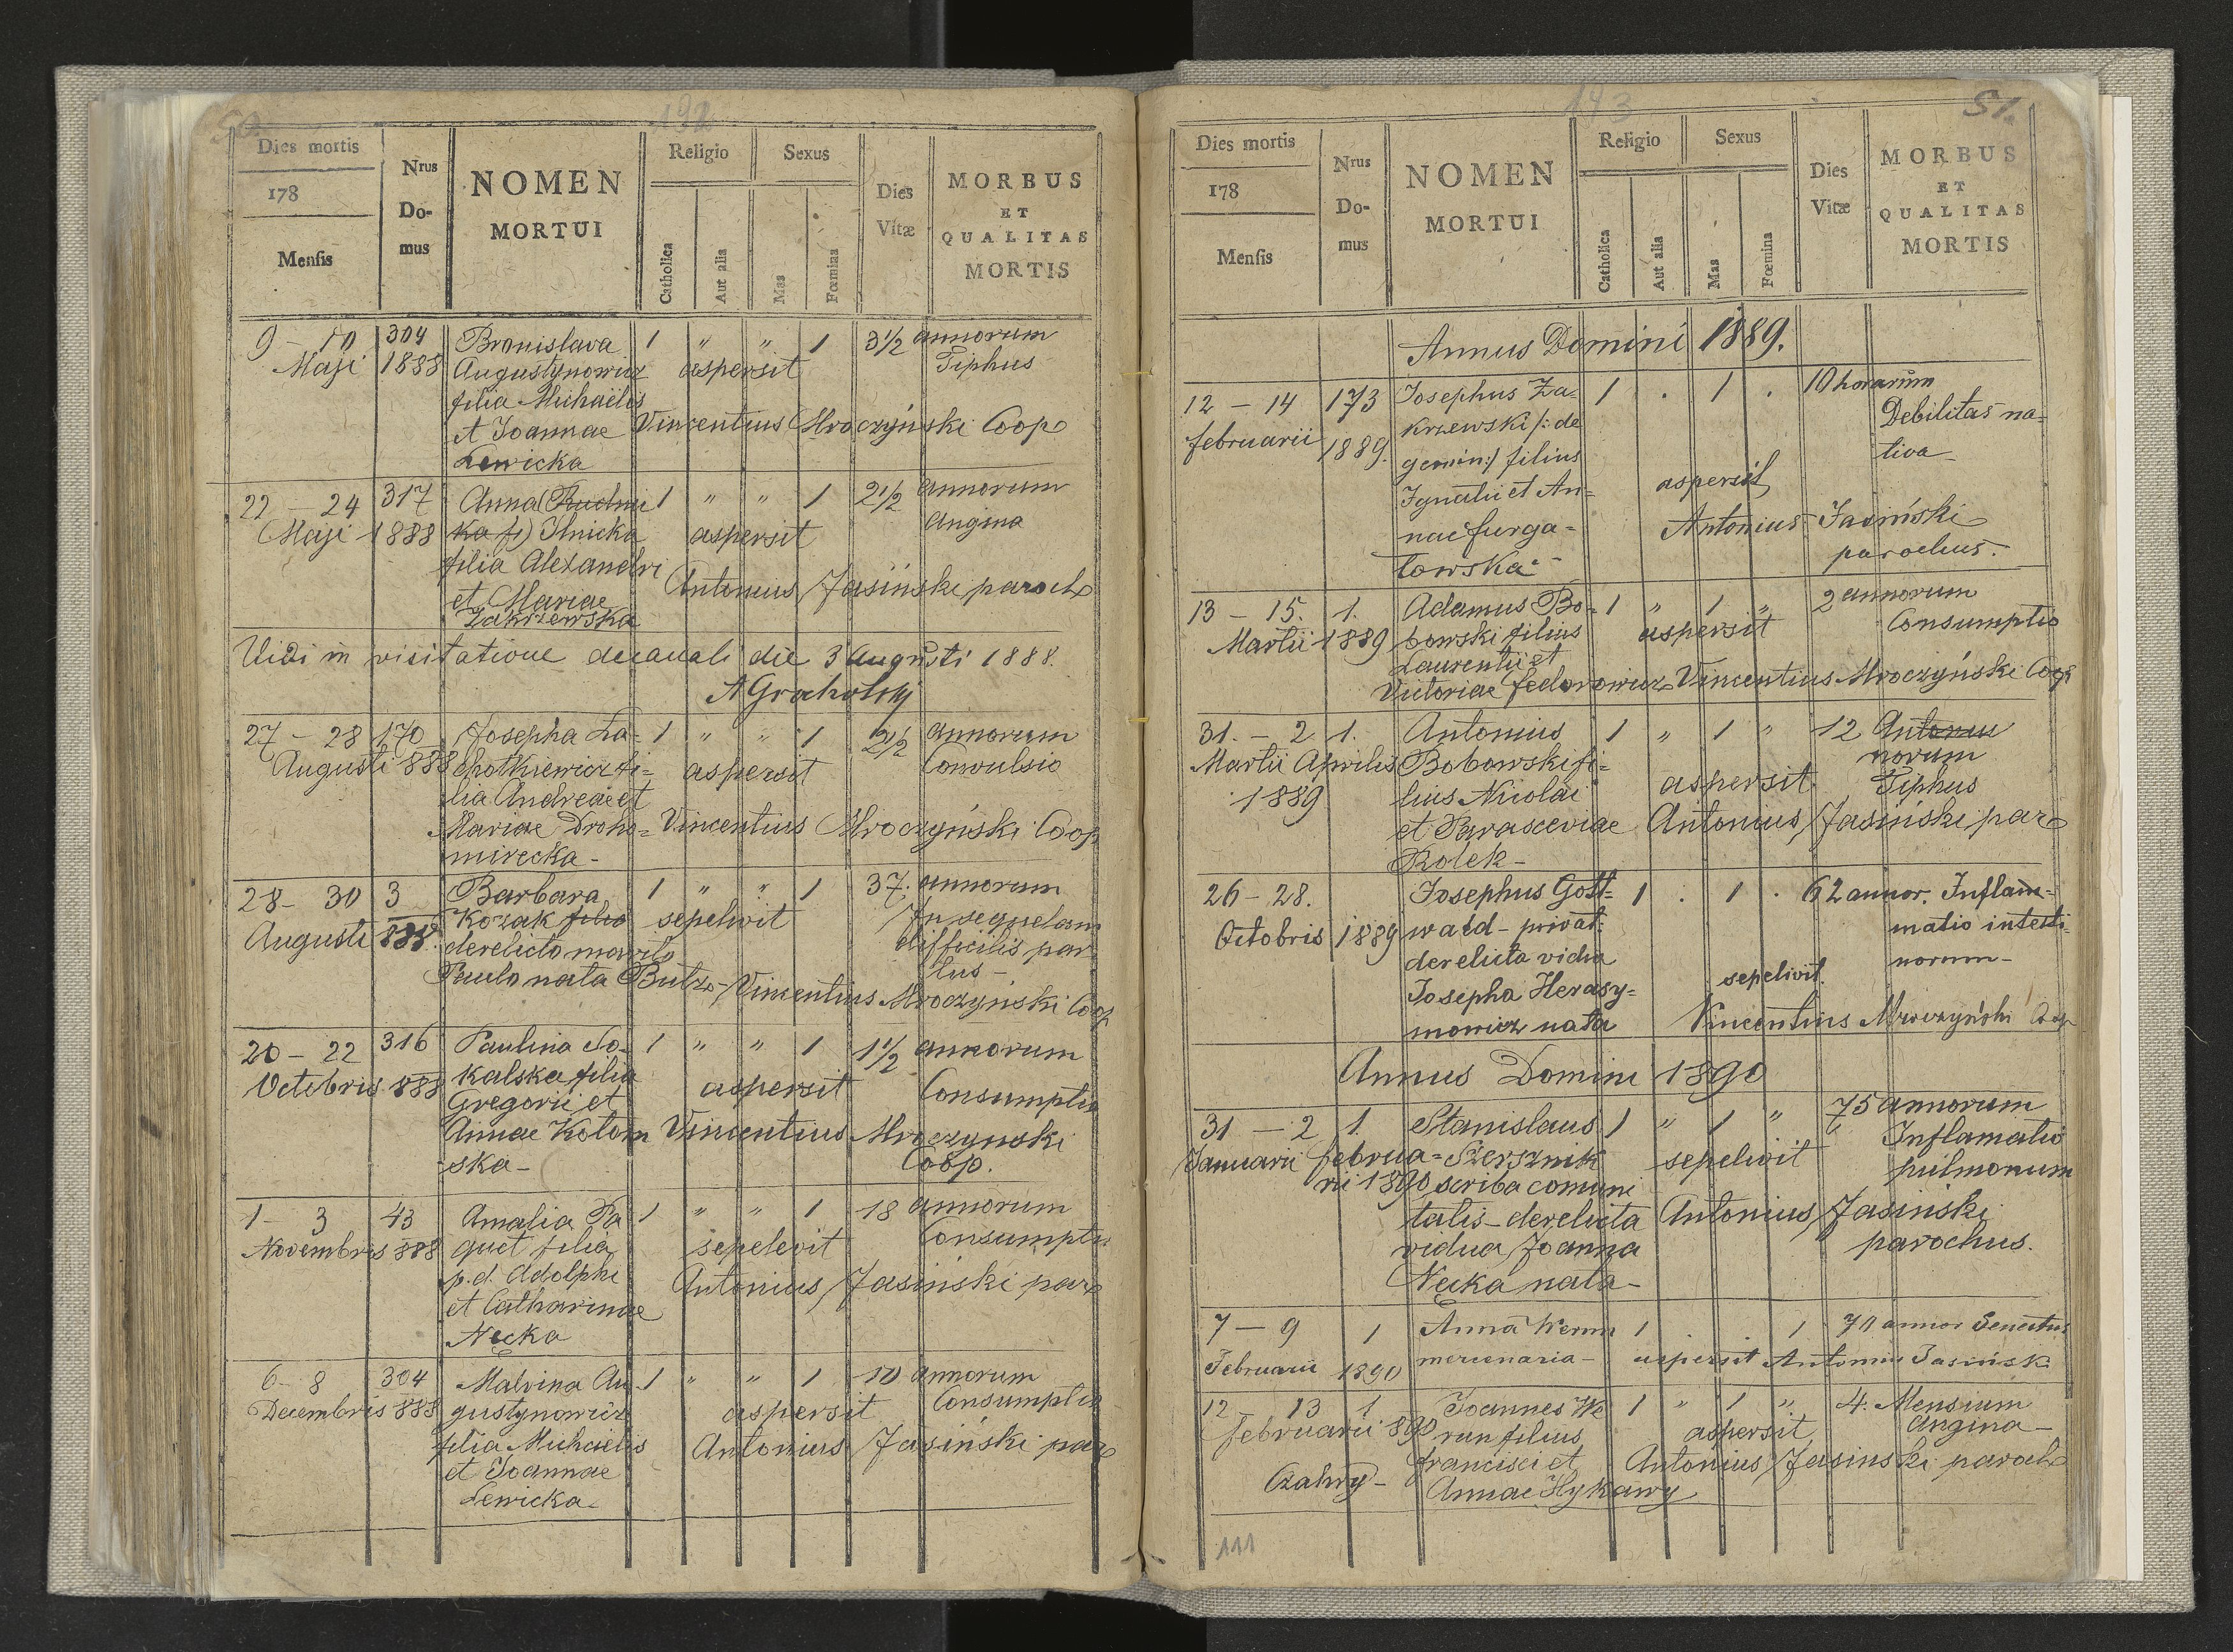 192
Dies mortis
178
Mensis
Nrus Do-mus
NOMEN MORTUI
Religio
Catholica
Aut alia
Sexus
Mas
Fœmina
Dies Vitæ
MORBUS ET QUALITAS MORTIS
9 - 10 304 Bronislava 1 " " 1 3 1/2 annorum
Maji 1888 Augustynowicz aspersit Tiphus
filia Michaëlis
et Joannae Vincentius Mroczyński Coop
Lewicka
22 - 24 317 Anna (Rudni 1 " " 1 2 1/2 annorum
Maji 1888 ka f) Ilnicka aspersit Angina
filia Alexandri
et Mariae Antonius Jasiński paroch
Zakrzewska
Vidi in visitatione decanali die 3 Augusti 1888.
A Grocholski
27 - 28 170 Josepha La- 1 " " 1 2 1/2 annorum
Augusti 888 chotkiewicz fi- aspersit Convulsio
lia Andreae et
Mariae Droho- Vincentius Mroczyński Coop
mirecka -
28 - 30 3 Barbara 1 " " 1 37. annorum
Augusti 888. Kozak filia sepelivit In sequelam
derelicto marito difficilis par
tus -
Paulo nata Butz - Vincentius Mroczyński Coop
20 - 22 316 Paulina So- 1 " " 1 1 1/2 annorum
Octobris 888 kalska filia aspersit Consumptio
Gregorii et
Annae Kolom Vincentius Mroczyński
ska - Coop.
1 - 3 43 Amalia Pa 1 " " 1 18 annorum
Novembris 888 quet filia sepelevit Consumptio
p.d. Adolphi Antonius Jasiński par
et Catharinae
Necka
6 - 8 304 Malvina Au- 1 " " 1 10 annorum
Decembris 888 gustynowicz aspersit Consumptio
filia Michaelis Antonius Jasiński par
et Joannae
Lewicka.
143
51.
Dies mortis
178
Mensis
Nrus Do-mus
NOMEN MORTUI
Religio
Catholica
Aut alia
Sexus
Mas
Fœmina
Dies Vitæ
MORBUS ET QUALITAS MORTIS
Annus Domini 1889.
12 - 14 173 Josephus Za- 1 . 1 . 10 horarum
februarii 1889. krzewski /: de Debilitas na-
gemin:/ filius tiva -
Ignatii et An- aspersit
nae furga- Antonius Jasiński
towska - parochus.
13 - 15. 1. Adamus Bo- 1 " 1 " 2 annorum
Martii 1889 bowski filius aspersit Consumptio
Laurentii et
Victoriae fedorowicz Vincentius Mroczyński Coop
31. - 2 1. Antonius 1 " 1 " 12 Antonu
Martii Aprilis Bobowski fi- norum
1889 lius Nicolai aspersit. Tiphus
et Parasceviae Antonius Jasiński par
Rolek -
26 - 28. Josephus Gott- 1 . 1 . 62 annor. Inflam-
Octobris 1889 wald - privat: matio intesti-
derelicta vidua norum -
Josepha Herasy- sepelivit.
mowicz nata Vincentius Mroczyński Coop
Annus Domini 1890
31 - 2 1. Stanislaus 1 " 1 " 75 annorum
Januarii februa- Szersznik sepelivit Inflamatio
rii 1890 scriba comuni pulmonum
talis - derelicta Antonius Jasiński
vidua Joanna parochus.
Necka nata -
7 - 9 1 Anna Wernn 1 . . 1 70 annor Senectus
Februarii 1890 mercenaria - aspersit Antonius Jasińsk
12 - 13 1 Joannes We 1 " 1 " 4. Mensium
februarii 890 run filius aspersit Angina -
francisci et Antonius Jasinski paroch
Czahry - Annae Hykawy
111